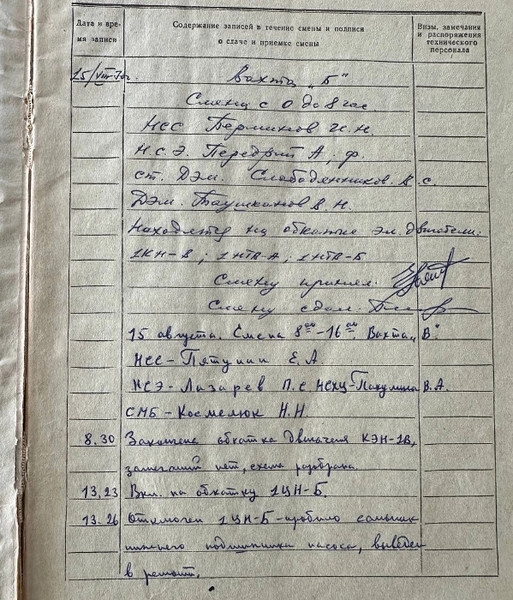 Дата и вре-
мя записи
Содержание записей в течение смены и подписи
о сдаче и приемке смены
Визы, замечания
и распоряжения
технического
персонала
15/VIII-70г. Вахта „Б"
Смену с 0 до 8 час
НСС Перминов И.Н.
Н.С.Э. Передрий А.Ф.
ст. Дэм. Слободянников В.С.
Дэм. Таушканов В.Н.
Находятся на обкатке эл. двигатели:
1КН-В; 1НТВ-А; 1НТВ-Б
Смену принял:
Смену сдал:
15 августа. Смена 8 00 - 16 00. Вахта „В"
НСС - Пятунин Е.А.
НСЭ - Лазарев П.С НСХЦ - Пакулина В.А.
СМБ - Космелюк Н.Н
8.30 Закончена обкатка двигателя КЭН-1В,
замечаний нет, схема разобрана.
13.23 Вкл. на обкатку 1ЦН-Б.
13.26 Отключен 1ЦН-Б - пробило сальник
нижнего подшипника насоса, выведен
в ремонт.